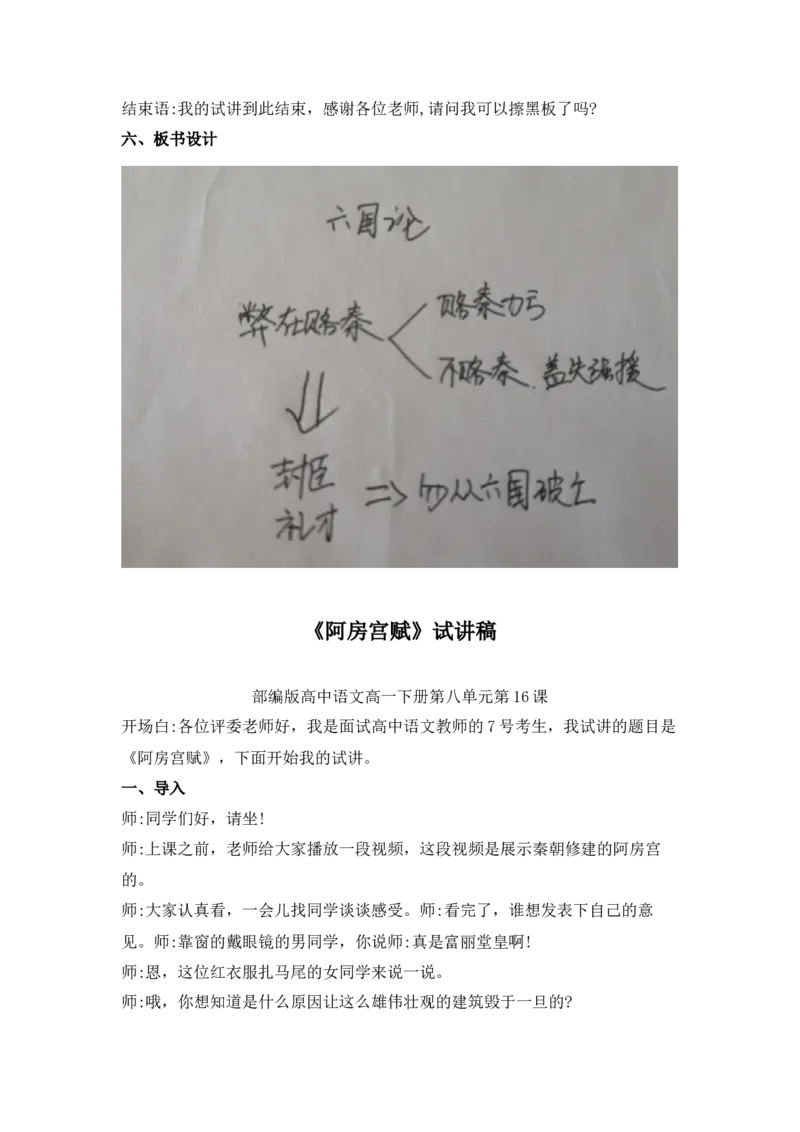 结束语:我的试讲到此结束，感谢各位老师,请问我可以擦黑板了吗?
六、板书设计
六国论
弊在赂秦
赂秦力亏
不赂秦.盖失强援
封臣
礼才
=> 勿从六国破亡
《阿房宫赋》试讲稿
部编版高中语文高一下册第八单元第16课
开场白:各位评委老师好，我是面试高中语文教师的7号考生，我试讲的题目是
《阿房宫赋》，下面开始我的试讲。
一、导入
师:同学们好，请坐!
师:上课之前，老师给大家播放一段视频，这段视频是展示秦朝修建的阿房宫
的。
师:大家认真看，一会儿找同学谈谈感受。师:看完了，谁想发表下自己的意
见。师:靠窗的戴眼镜的男同学，你说师:真是富丽堂皇啊!
师:恩，这位红衣服扎马尾的女同学来说一说。
师:哦，你想知道是什么原因让这么雄伟壮观的建筑毁于一旦的?